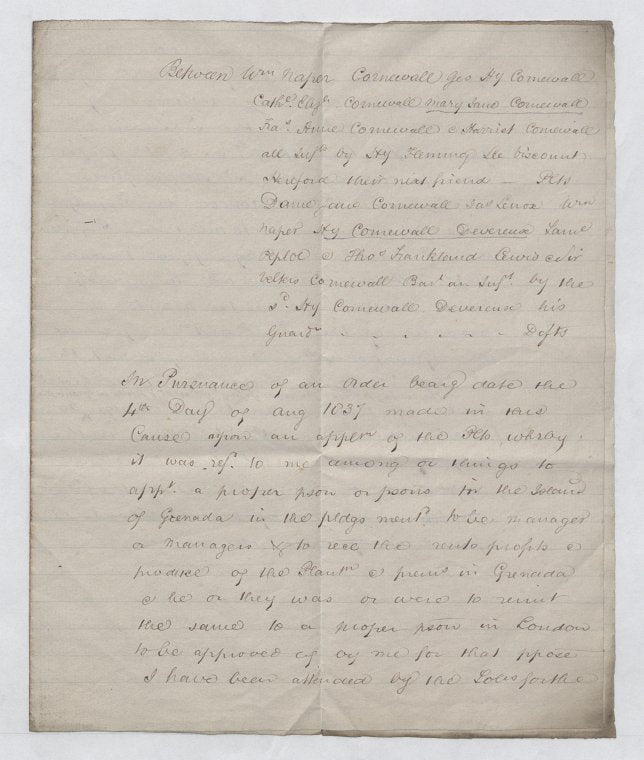 Between Wm Naper Cornewall Geo Hy Cornewall
Cathe. Eliz. Cornewall Mary Jane Cornewall
Fras. Anne Cornewall & Harriet Cornewall
all Infts by Hy Fleming Lee Viscount
Hereford their next friend — Plts
Dame Jane Cornewall Jas Lenox Wm
Naper Hy Cornewall Devereux Saml
& Thos Frankland Lewis & Sir
Velters Cornewall Bart an Inft. by the
sd. Hy Cornewall Devereux his
Guardn - - - - - - Defts
In Pursuance of an Order bearg date the
4th Day of Aug 1837 made in this
Cause upon an appln of the Plts whrby
it was refd. to me among or things to
appt. a proper pson or psons in the Island
of Grenada in the pldgs mentd. to be manager
or managers & to rece the rents profits &
produce of the Plantn & prems in Grenada
& he or they was or were to remit
the same to a proper pson in London
to be approved of by me for that ppose
I have been attended by the Solrs for the